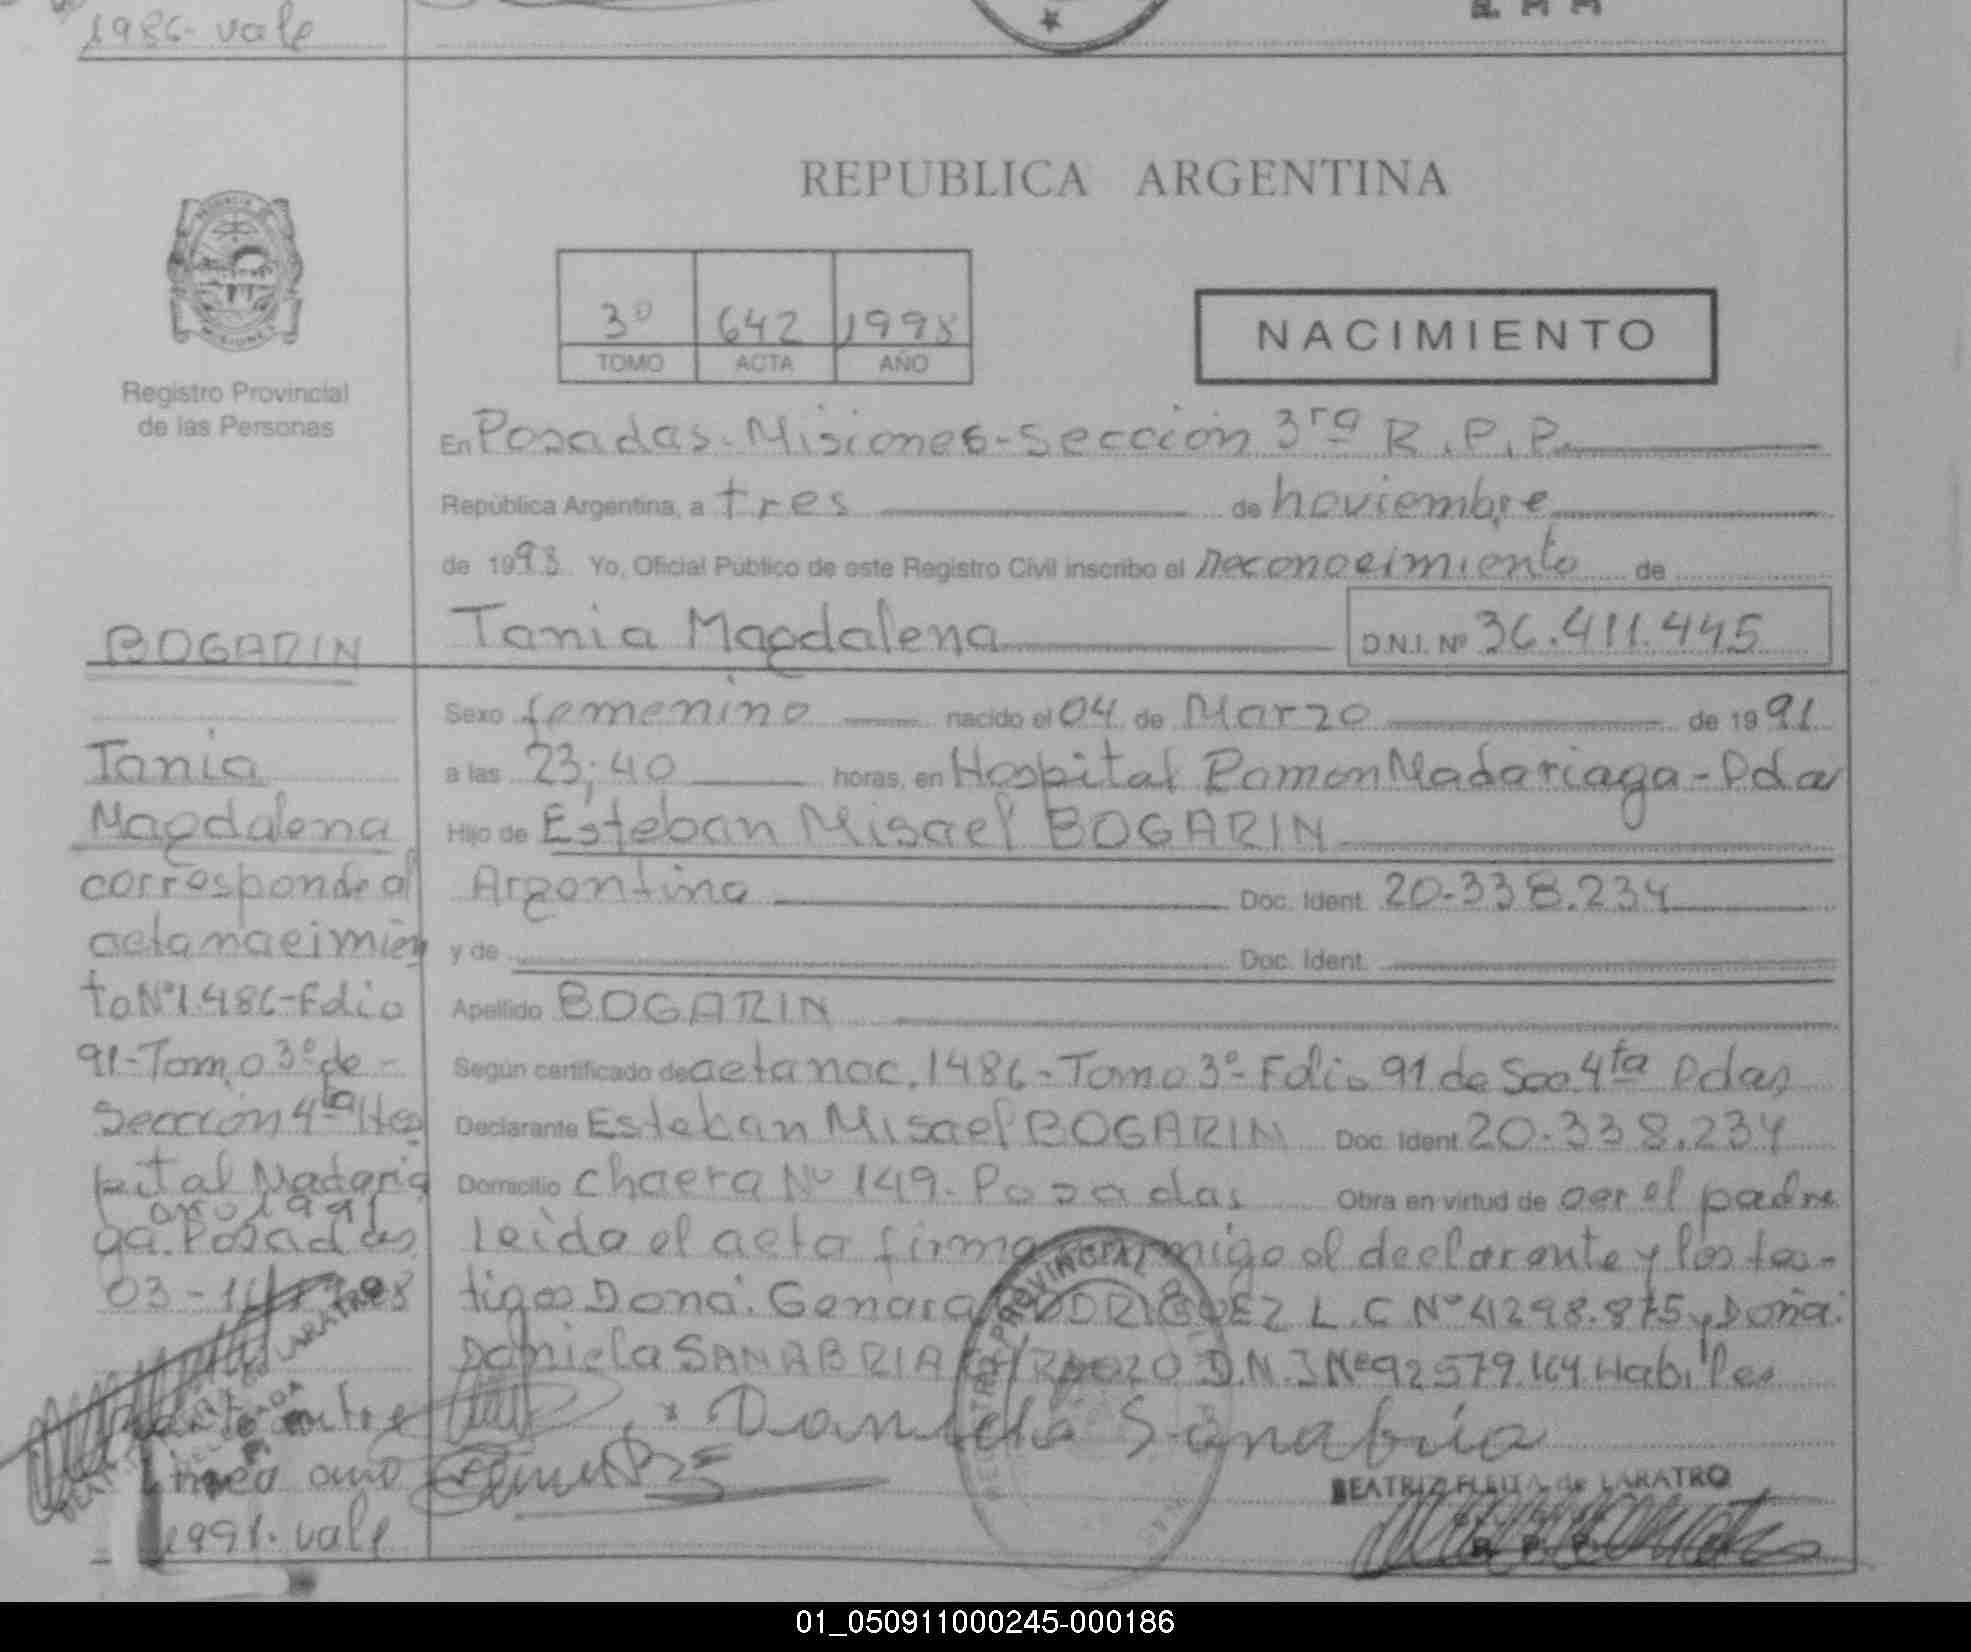 1986- vale
REPUBLICA ARGENTINA
3º 642 1998
TOMO ACTA AÑO
NACIMIENTO
Registro Provincial
de las Personas
En Posadas-Misiones-Sección 3ra R.P.P.
República Argentina, a tres de noviembre
de 1998 Yo, Oficial Público de este Registro Civil inscribo el Reconocimiento de
Tania Magdalena D.N.I. Nº 36.411.445
BOGARIN
Tania
Magdalena
corresponde al
acta nacimien
to Nº 1.486-Folio
91-Tomo 3º de-
Sección 4ta Hos
pital Madaria
año 1991
ga. Posadas
03-11-1998
entre
linea año
1991. vale
Sexo femenino nacido el 04 de Marzo de 1991
a las 23;40 horas, en Hospital Ramon Madariaga-Pdas
Hijo de Esteban Misael BOGARIN
Argentino Doc. Ident. 20.338.234
y de Doc. Ident.
Apellido BOGARIN
Según certificado de acta nac. 1486-Tomo 3º-Folio 91 de Sec. 4ta Pdas
Declarante Esteban Misael BOGARIN Doc. Ident. 20.338.234
Domicilio Chacra Nº 149. Posadas Obra en virtud de ser el padre
leído el acta firma conmigo el declarante y los tes-
tigos Doña: Genara RODRIGUEZ L.C Nº 4298.875 y Doña:
Daniela SANABRIA D.N.I Nº 92579.164 Habiles
Daniela Sanabria
REGISTRO PROVINCIAL
BEATRIZ FLEITA de LARATRO
R. P. P.
01_050911000245-000186